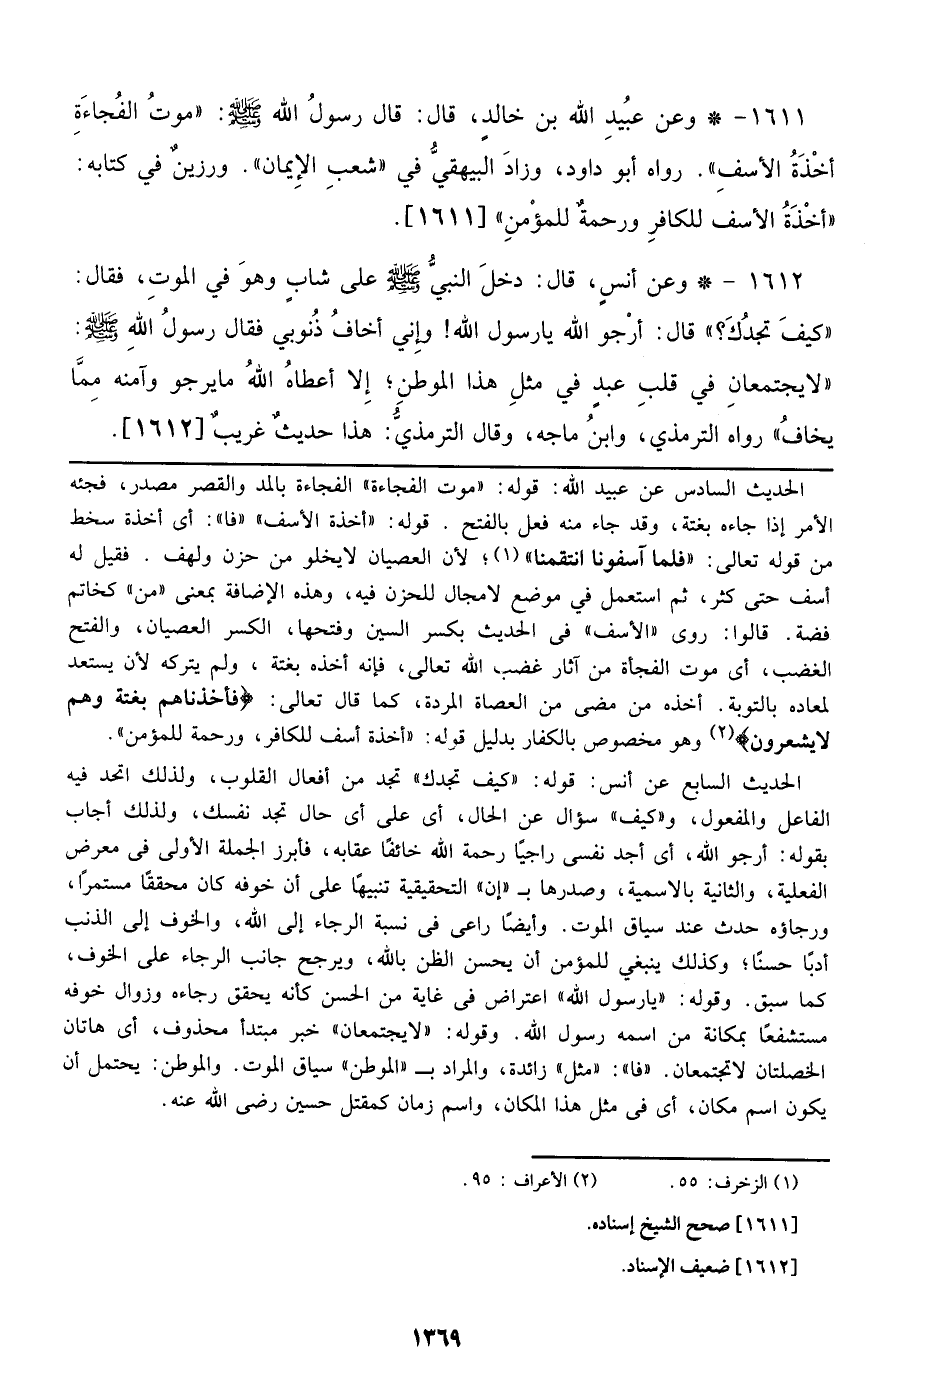 ١٦١١- * وعن عبُيدِ الله بن خالدٍ، قال: قال رسولُ الله ﷺ: «موتُ الفُجاءَةِ
أخْذَةُ الأسفِ». رواه أبو داود، وزادَ البيهقيُّ في «شعبِ الإيمان». ورزينٌ في كتابه:
«أخْذَةُ الأسف للكافرِ ورحمةٌ للمؤْمنِ» [١٦١١].
١٦١٢ - * وعن أنسٍ، قال: دخلَ النبيُّ ﷺ على شابٍ وهوَ في الموتِ، فقال:
«كيفَ تجدُكَ؟» قال: أرْجو الله يارسول الله! وإني أخافُ ذُنوبي فقال رسولُ اللهِ ﷺ:
«لايجتمعانِ في قلبِ عبدٍ في مثلِ هذا الموطنِ؛ إلا أعطاهُ اللهُ مايرجو وآمنه ممَّا
يخافُ» رواه الترمذي، وابنُ ماجه، وقال الترمذيُّ: هذا حديثٌ غريبٌ [١٦١٢].
الحديث السادس عن عبيد الله: قوله: «موت الفجاءة» الفجاءة بالمد والقصر مصدر، فجئه
الأمر إذا جاءه بغتة، وقد جاء منه فعل بالفتح . قوله: «أخذة الأسف» «فا»: أى أخذة سخط
من قوله تعالى: «فلما آسفونا انتقمنا»(١)؛ لأن العصيان لايخلو من حزن ولهف . فقيل له
أسف حتى كثر، ثم استعمل في موضع لامجال للحزن فيه، وهذه الإضافة بمعنى «من» كخاتم
فضة. قالوا: روى «الأسف» فى الحديث بكسر السين وفتحها، الكسر العصيان، والفتح
الغضب، أى موت الفجأة من آثار غضب الله تعالى، فإنه أخذه بغتة ، ولم يتركه لأن يستعد
لمعاده بالتوبة. أخذه من مضى من العصاة المردة، كما قال تعالى: ﴿فأخذناهم بغتة وهم
لايشعرون﴾(٢) وهو مخصوص بالكفار بدليل قوله: «أخذة أسف للكافر، ورحمة للمؤمن».
الحديث السابع عن أنس: قوله: «كيف تجدك» تجد من أفعال القلوب، ولذلك اتحد فيه
الفاعل والمفعول، و«كيف» سؤال عن الحال، أى على أى حال تجد نفسك، ولذلك أجاب
بقوله: أرجو الله، أى أجد نفسى راجيًا رحمة الله خائفًا عقابه، فأبرز الجملة الأولى فى معرض
الفعلية، والثانية بالاسمية، وصدرها بـ «إن» التحقيقية تنبيهًا على أن خوفه كان محققًا مستمرًا،
ورجاؤه حدث عند سياق الموت. وأيضًا راعى فى نسبة الرجاء إلى الله، والخوف إلى الذنب
أدبًا حسنًا؛ وكذلك ينبغي للمؤمن أن يحسن الظن بالله، ويرجح جانب الرجاء على الخوف،
كما سبق. وقوله: «يارسول الله» اعتراض فى غاية من الحسن كأنه يحقق رجاءه وزوال خوفه
مستشفعًا بمكانة من اسمه رسول الله. وقوله: «لايجتمعان» خبر مبتدأ محذوف، أى هاتان
الخصلتان لاتجتمعان. «فا»: «مثل» زائدة، والمراد بـ «الموطن» سياق الموت. والموطن: يحتمل أن
يكون اسم مكان، أى فى مثل هذا المكان، واسم زمان كمقتل حسين رضى الله عنه.
(١) الزخرف: ٥٥. (٢) الأعراف : ٩٥.
[١٦١١] صحح الشيخ إسناده.
[١٦١٢] ضعيف الإسناد.
١٣٦٩